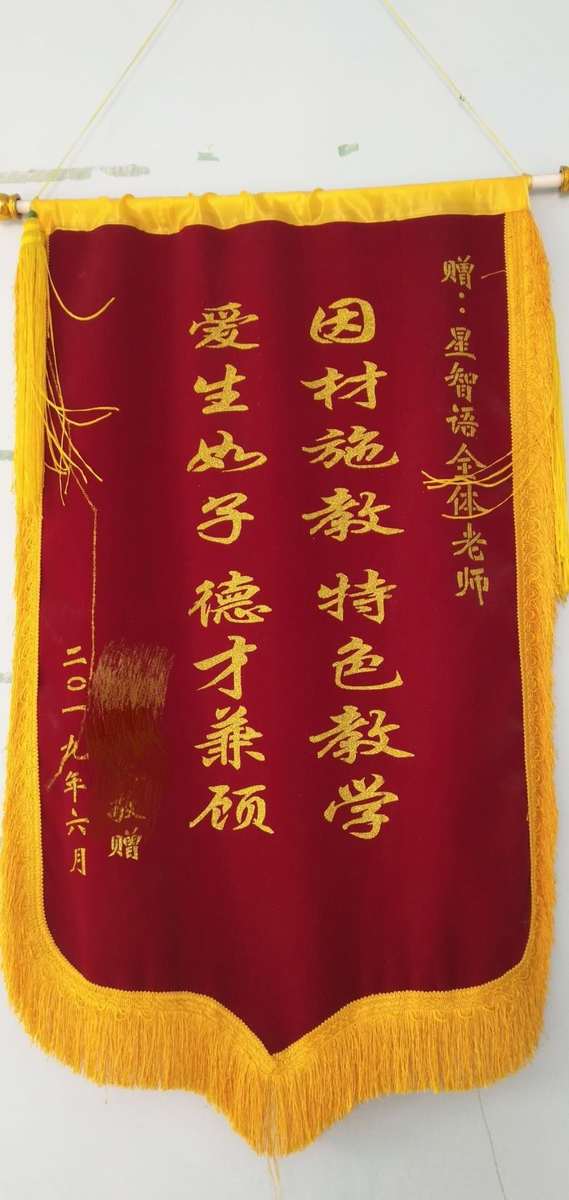 赠：星智语全体老师
因材施教 特色教学
爱生如子 德才兼顾
敬赠
二〇一九年六月